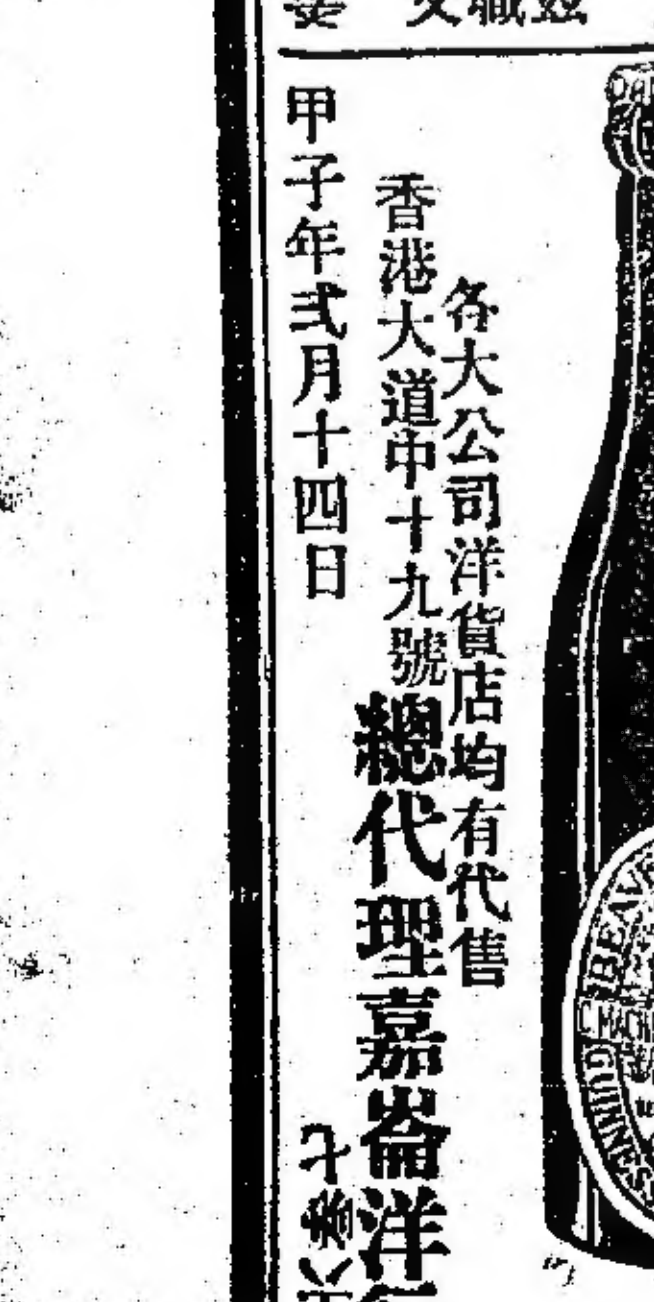 各大公司洋貨店均有代售
香港大道中十九號總代理嘉崙洋
甲子年弍月十四日
BEAV
GUINNESS